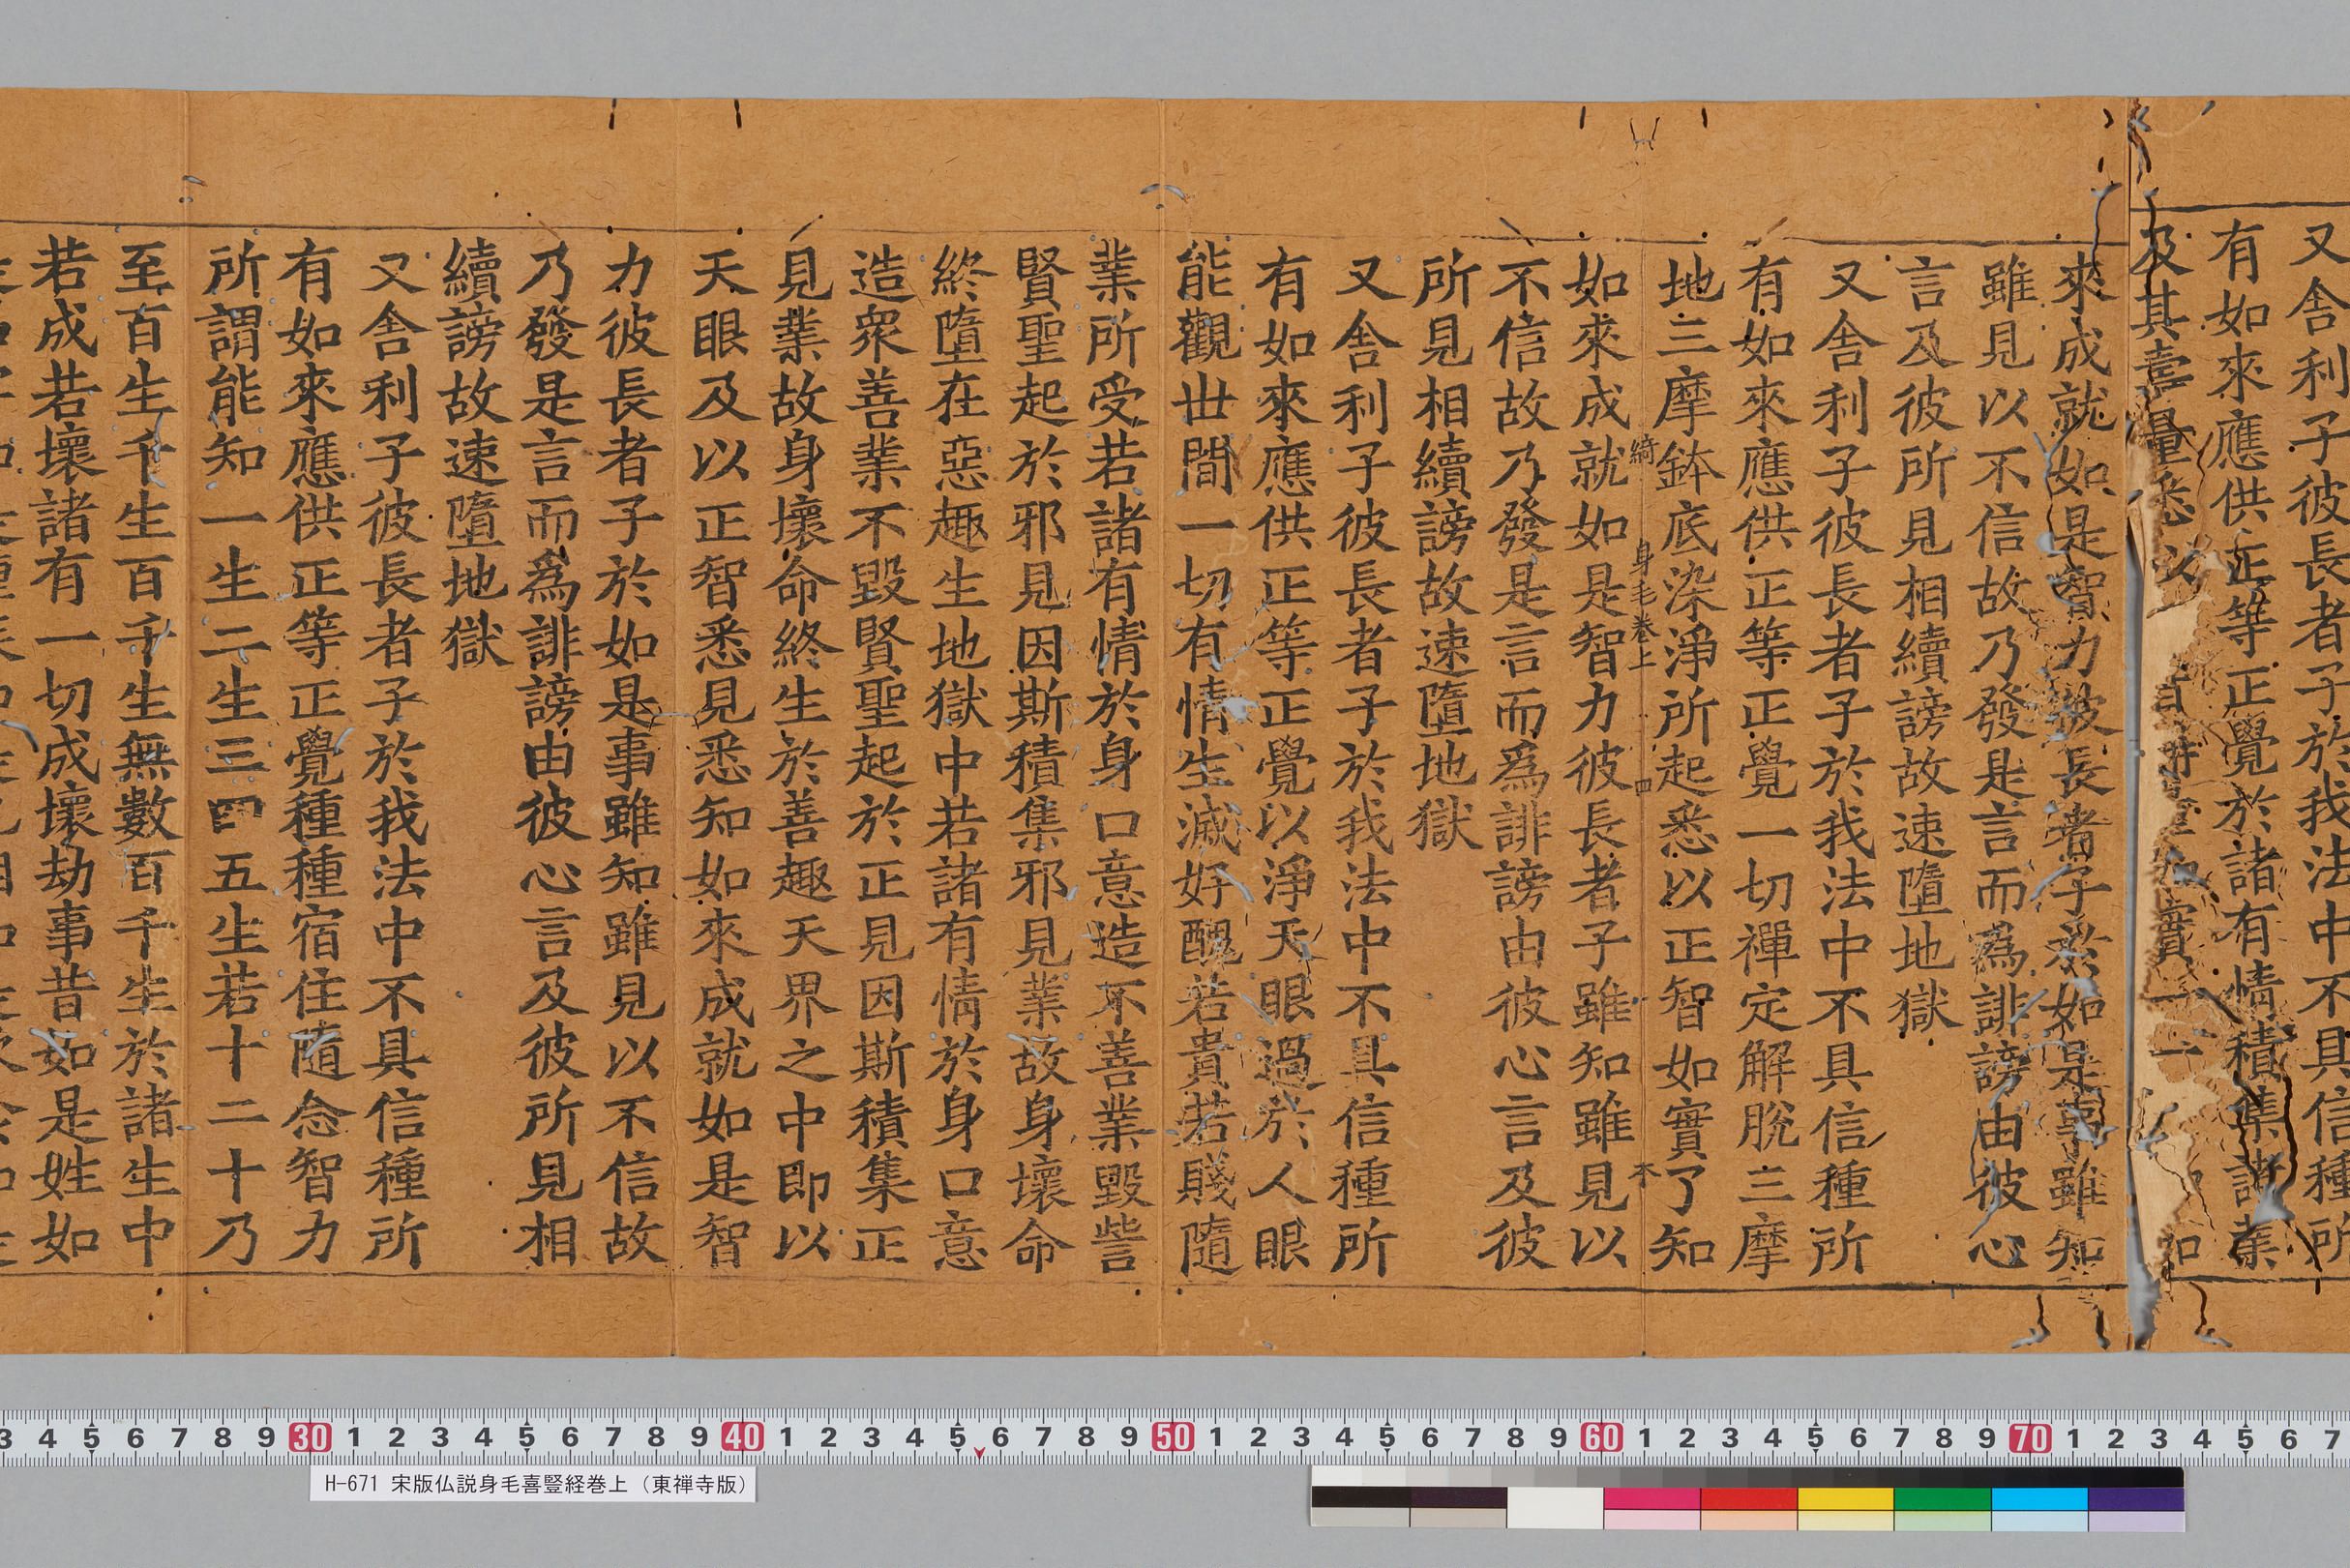 又舍利子彼長者子於我法中不具信種所
有如來應供正等正覺於諸有情積集諸業
及其喜量悉以
來成就如是智力彼長者子於如是事雖知
雖見以不信故乃發是言而爲誹謗由彼心
言及彼所見相續謗故速墮地獄
又舍利子彼長者子於我法中不具信種所
有如來應供正等正覺一切禪定解脫三摩
地三摩鉢底染淨所起悉以正智如實了知
綺 身毛卷上 四
如來成就如是智力彼長者子雖知雖見以
不信故乃發是言而爲誹謗由彼心言及彼
所見相續謗故速墮地獄
又舍利子彼長者子於我法中不具信種所
有如來應供正等正覺以淨天眼過於人眼
能觀世間一切有情生滅好醜若貴若賤隨
業所受若諸有情於身口意造不善業毀訾
賢聖起於邪見因斯積集邪見業故身壞命
終墮在惡趣生地獄中若諸有情於身口意
造衆善業不毀賢聖起於正見因斯積集正
見業故身壞命終生於善趣天界之中即以
天眼及以正智悉見悉知如來成就如是智
力彼長者子於如是事雖知雖見以不信故
乃發是言而爲誹謗由彼心言及彼所見相
續謗故速墮地獄
又舍利子彼長者子於我法中不具信種所
有如來應供正等正覺種種宿住隨念智力
所謂能知一生二生三四五生若十二十乃
至百生千生百千生無數百千生於諸生中
若成若壞諸有一切成壞劫事昔如是姓如
H-671 宋版仏説身毛喜豎経巻上（東禅寺版）